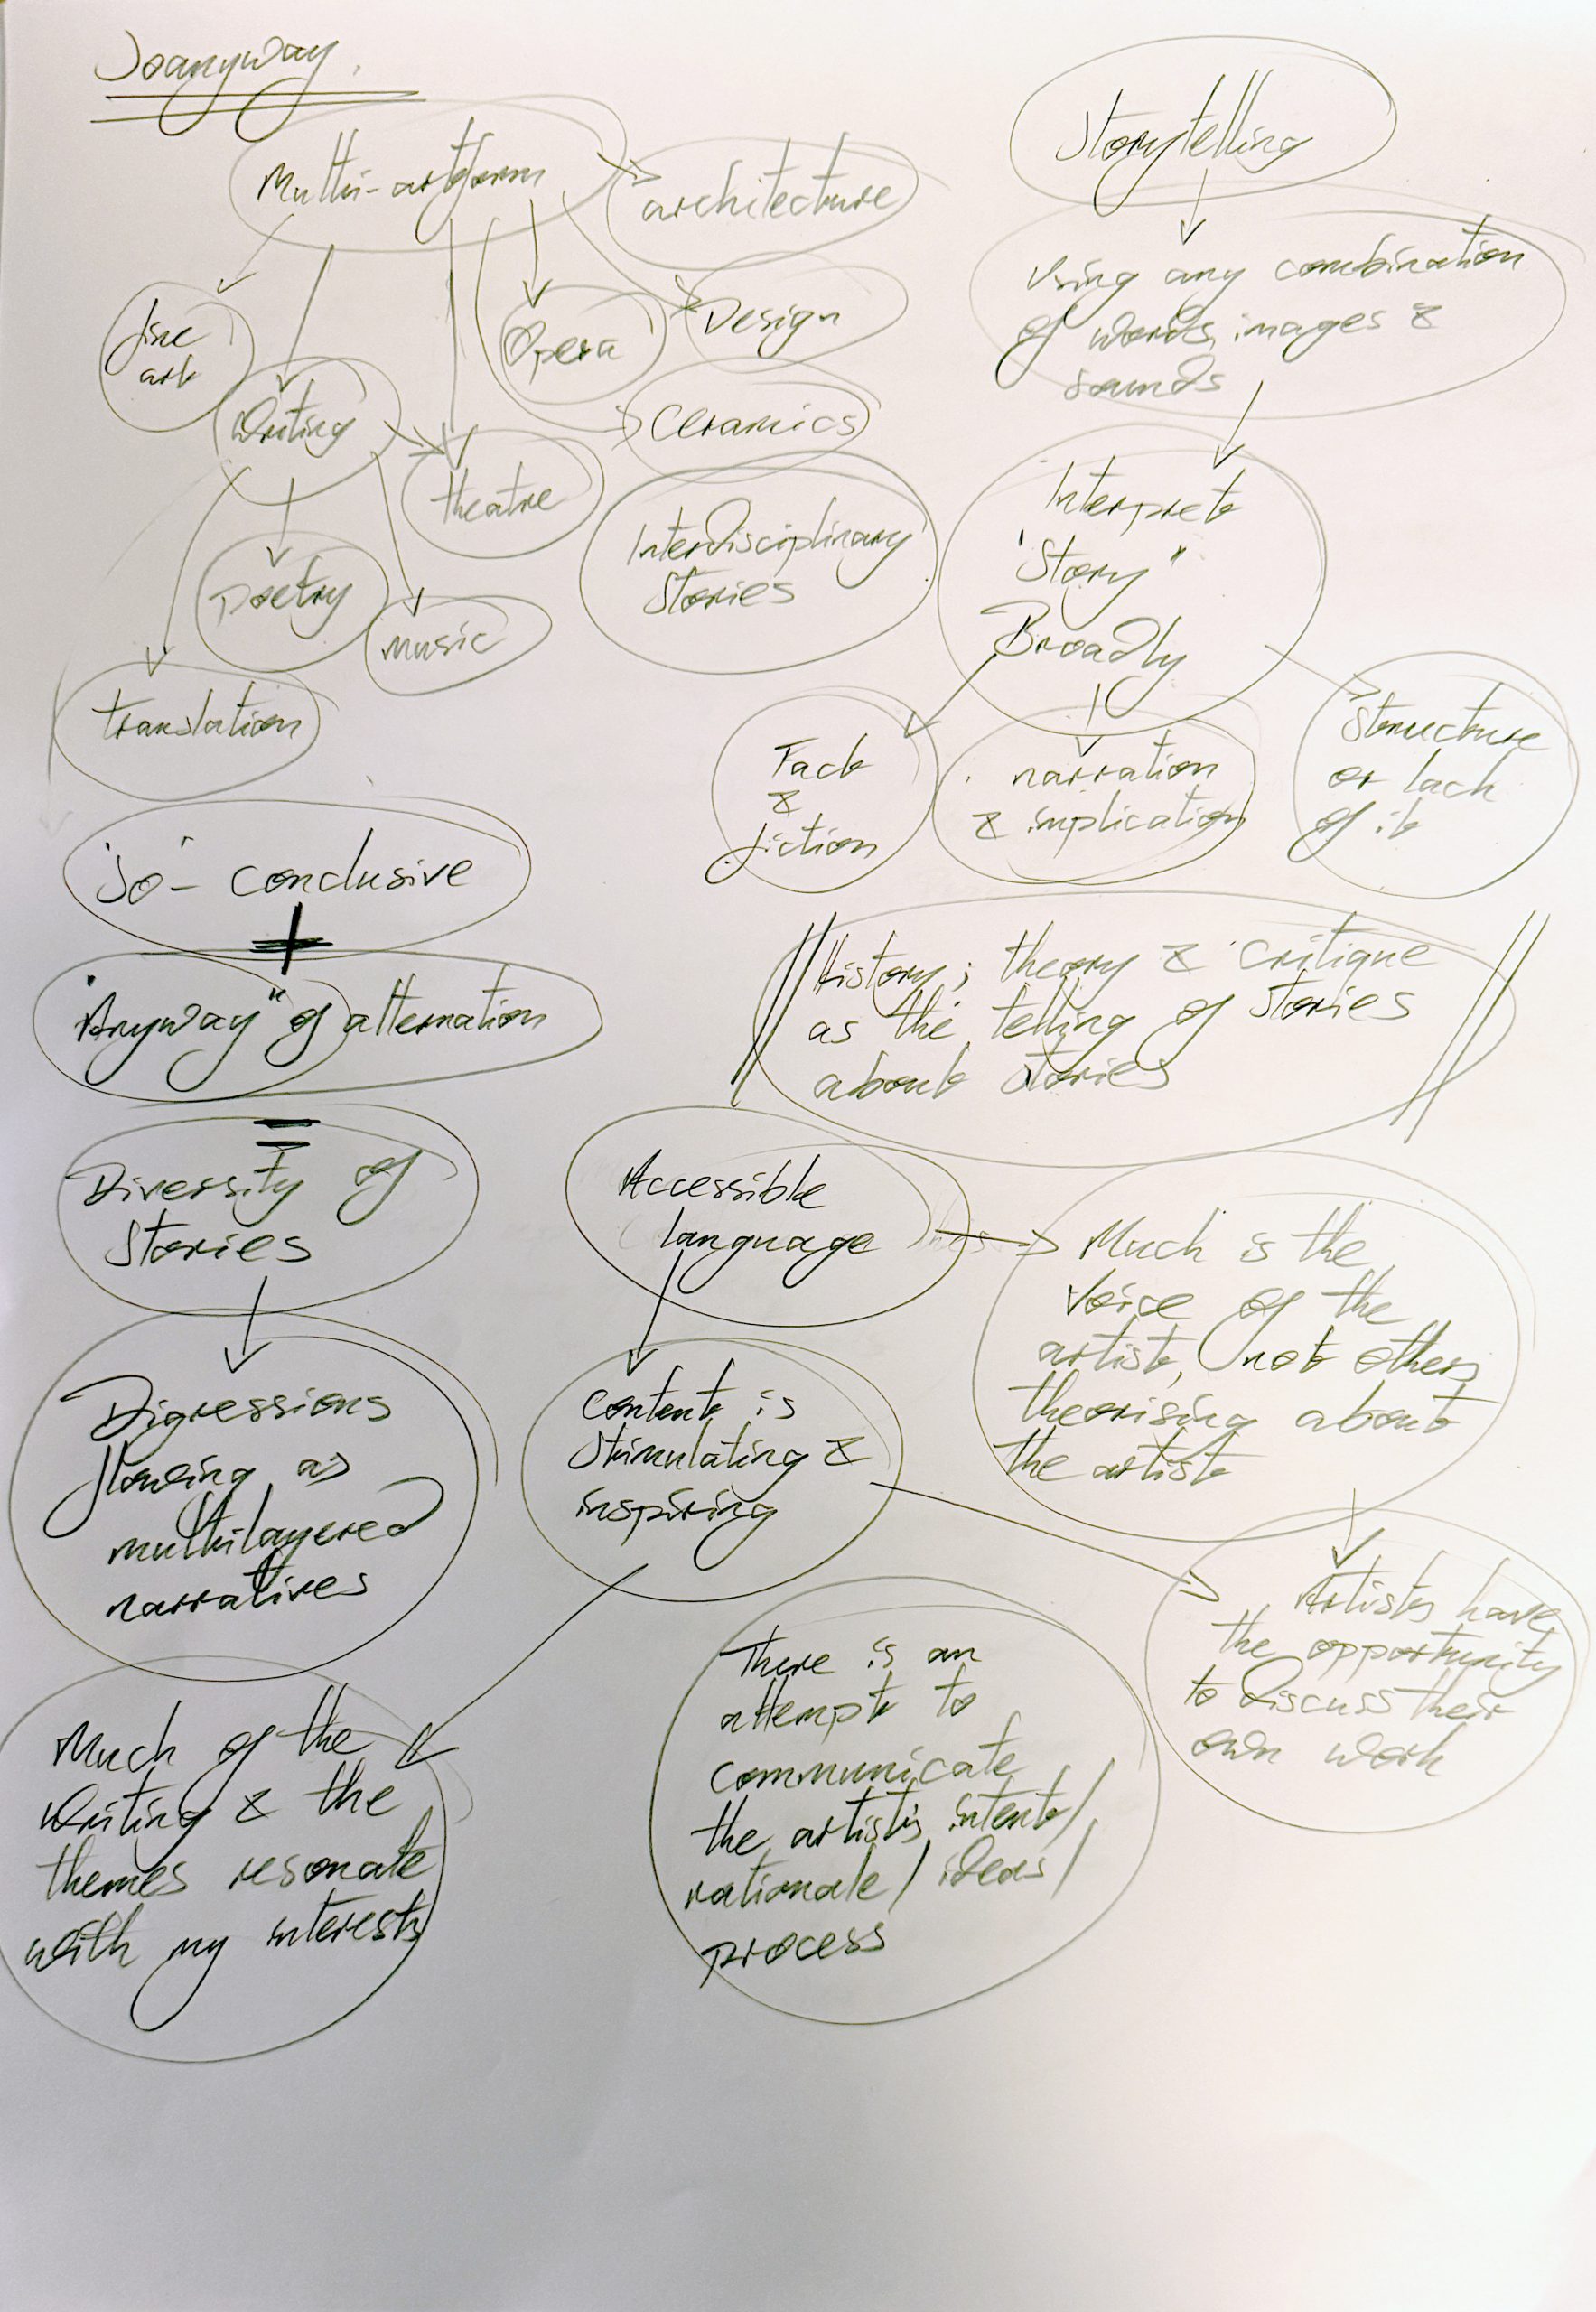 Soanyway
Multi-artform
architecture
fine
art
Writing
theatre
Opera
Design
Ceramics
poetry
music
translation
Interdisciplinary
Stories
Storytelling
Using any combination
of words, images &
sounds
Interpret
"Story"
Broadly
Fact
&
fiction
narration
& implication
Structure
or lack
of it
'So' - conclusive
+
"Anyway" of alternation
=
Diversity of
Stories
Digressions
flowing as
multilayered
narratives
History; theory & critique
as the telling of stories
about stories
Accessible
language
Much is the
voice of the
artist, not others
theorising about
the artist
Content is
stimulating &
inspiring
Artists have
the opportunity
to discuss their
own work
Much of the
writing & the
themes resonate
with my interests
There is an
attempt to
communicate
the artist's intent/
rationale/ ideas/
process